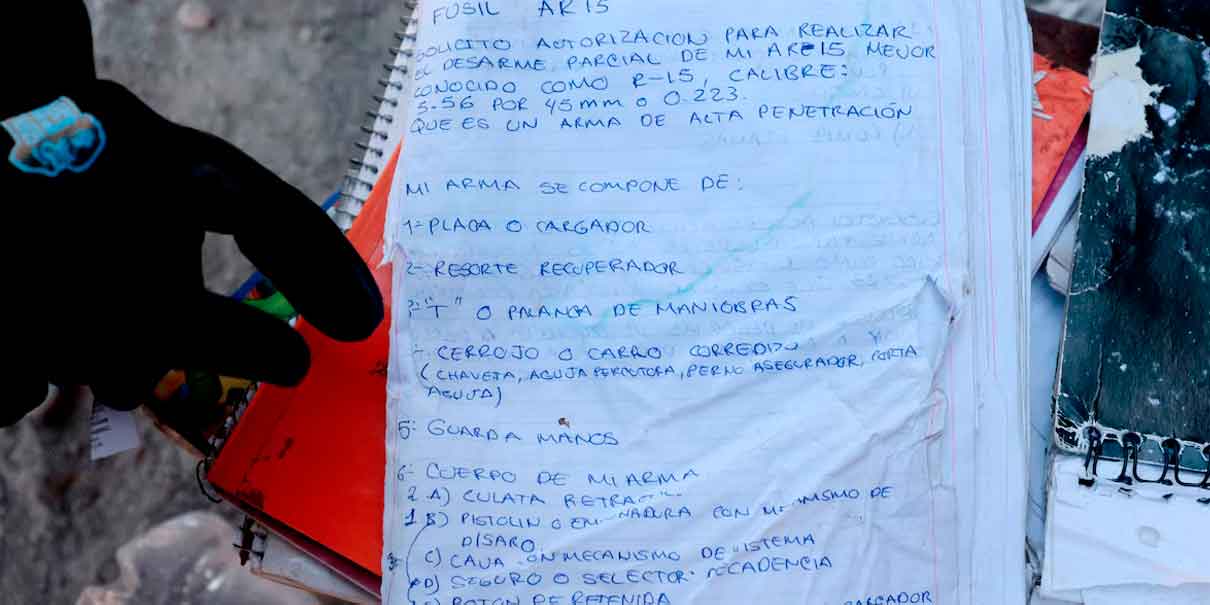 FUSIL AR15
SOLICITO AUTORIZACION PARA REALIZAR
EL DESARME PARCIAL DE MI ARE15 MEJOR
CONOCIDO COMO R-15, CALIBRE:
5.56 POR 45 mm o 0.223.
QUE ES UN ARMA DE ALTA PENETRACIÓN
MI ARMA SE COMPONE DE:
1= PLACA O CARGADOR
2- RESORTE RECUPERADOR
3-"T" O PALANCA DE MANIOBRAS
- CERROJO O CARRO CORREDIZO Y
(CHAVETA, AGUJA PERCUTORA, PERNO ASEGURADOR, PORTA
AGUJA)
5- GUARDA MANOS
6- CUERPO DE MI ARMA
2 A) CULATA
1 B) PISTOLIN O CON DE
DISARO
C) CAJA MECANISMO DE
D) SEGURO O SELECTOR CADENCIA
BOTON DE RETENIDA CARGADOR